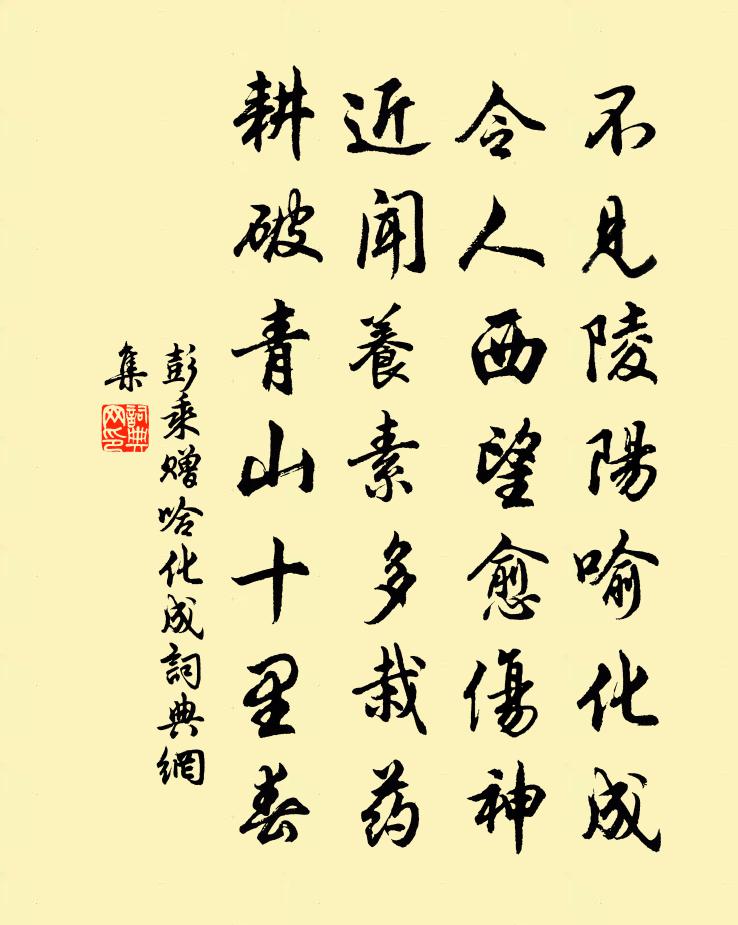 不見陵陽喻化成
令人西望愈傷神
近聞養素多栽药
耕破青山十里春
彭乘赠喻化成詞典網
集
詞典
网印